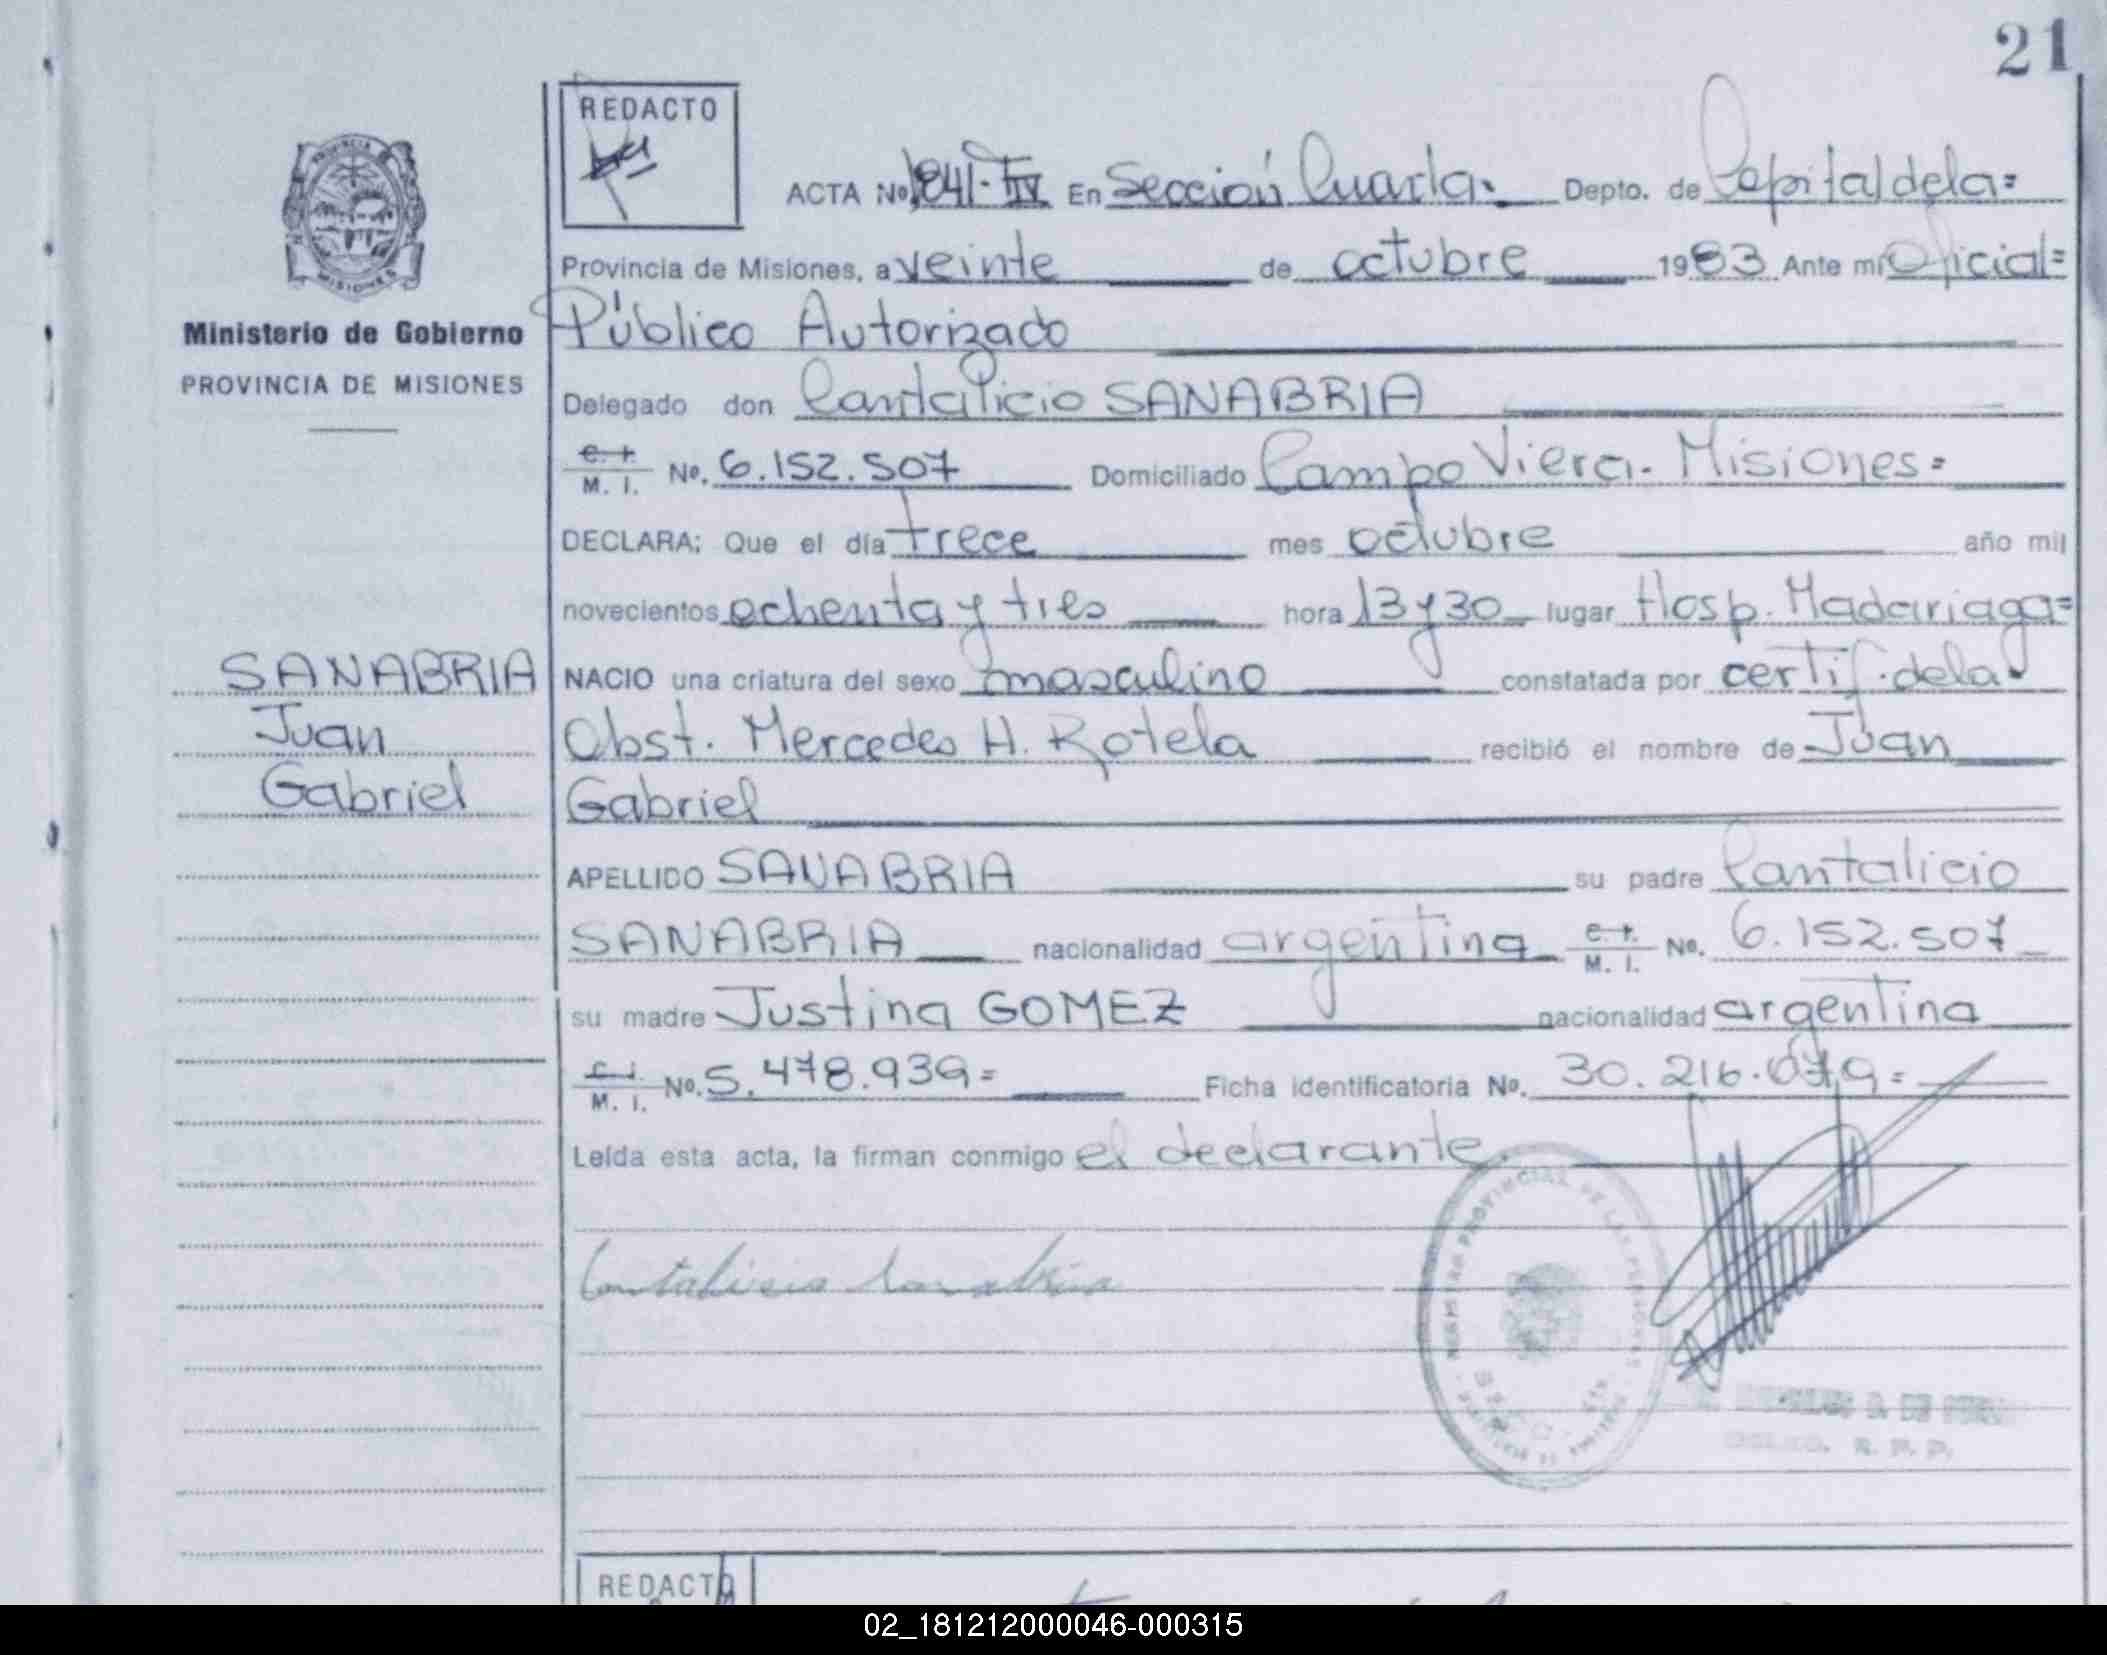 21
REDACTO
ACTA No 1841-IV En Sección Cuarta. Depto. de Capital de la=
Provincia de Misiones, a veinte de octubre 1983 Ante mi Oficial=
Ministerio de Gobierno
PROVINCIA DE MISIONES
Público Autorizado
Delegado don Cantalicio SANABRIA
C. I. M. I. No. 6.152.507 Domiciliado Campo Viera. Misiones=
DECLARA: Que el día trece mes octubre año mil
novecientos ochenta y tres hora 13 y 30 lugar Hosp. Madariaga=
NACIO una criatura del sexo masculino constatada por certif. de la
Obst. Mercedes H. Rotela recibió el nombre de Juan
Gabriel
SANABRIA
Juan
Gabriel
APELLIDO SANABRIA su padre Cantalicio
SANABRIA nacionalidad argentina C. I. M. I. No. 6.152.507
su madre Justina GOMEZ nacionalidad argentina
C. I. M. I. No. 5.478.939= Ficha identificatoria No. 30.216.079=
Leída esta acta, la firman conmigo el declarante.
Cantalicio Sanabria
REGISTRO PROVINCIAL DE LAS PERSONAS
R. P. P.
REDACTO
02_181212000046-000315